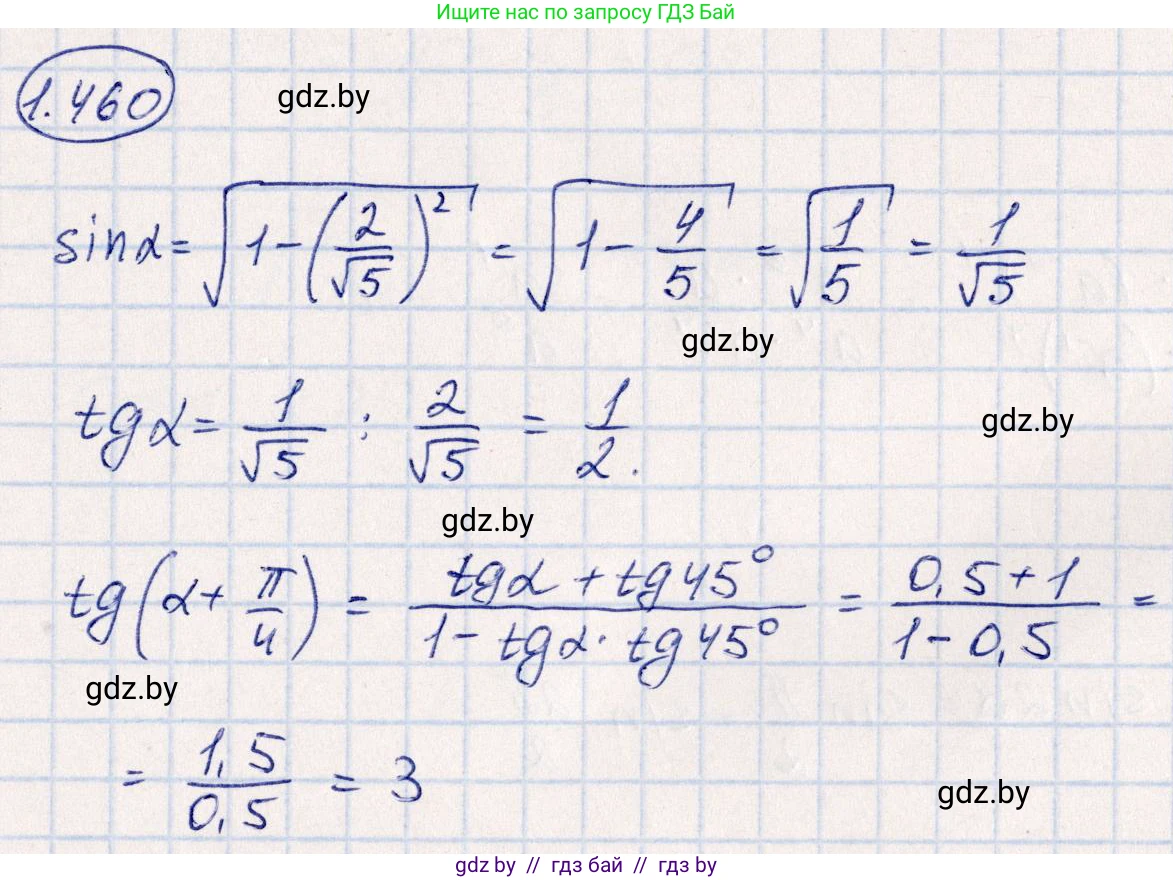 Ищите нас по запросу ГДЗ Бай
1.460
gdz.by
sinα = √(1 − (2/√5)²) = √(1 − 4/5) = √(1/5) = 1/√5
gdz.by
tgα = 1/√5 : 2/√5 = 1/2.
gdz.by
gdz.by
tg(α + π/4) = (tgα + tg45°)/(1 − tgα · tg45°) = (0,5 + 1)/(1 − 0,5) =
gdz.by
= 1,5/0,5 = 3
gdz.by
gdz by // гдз бай // гдз by